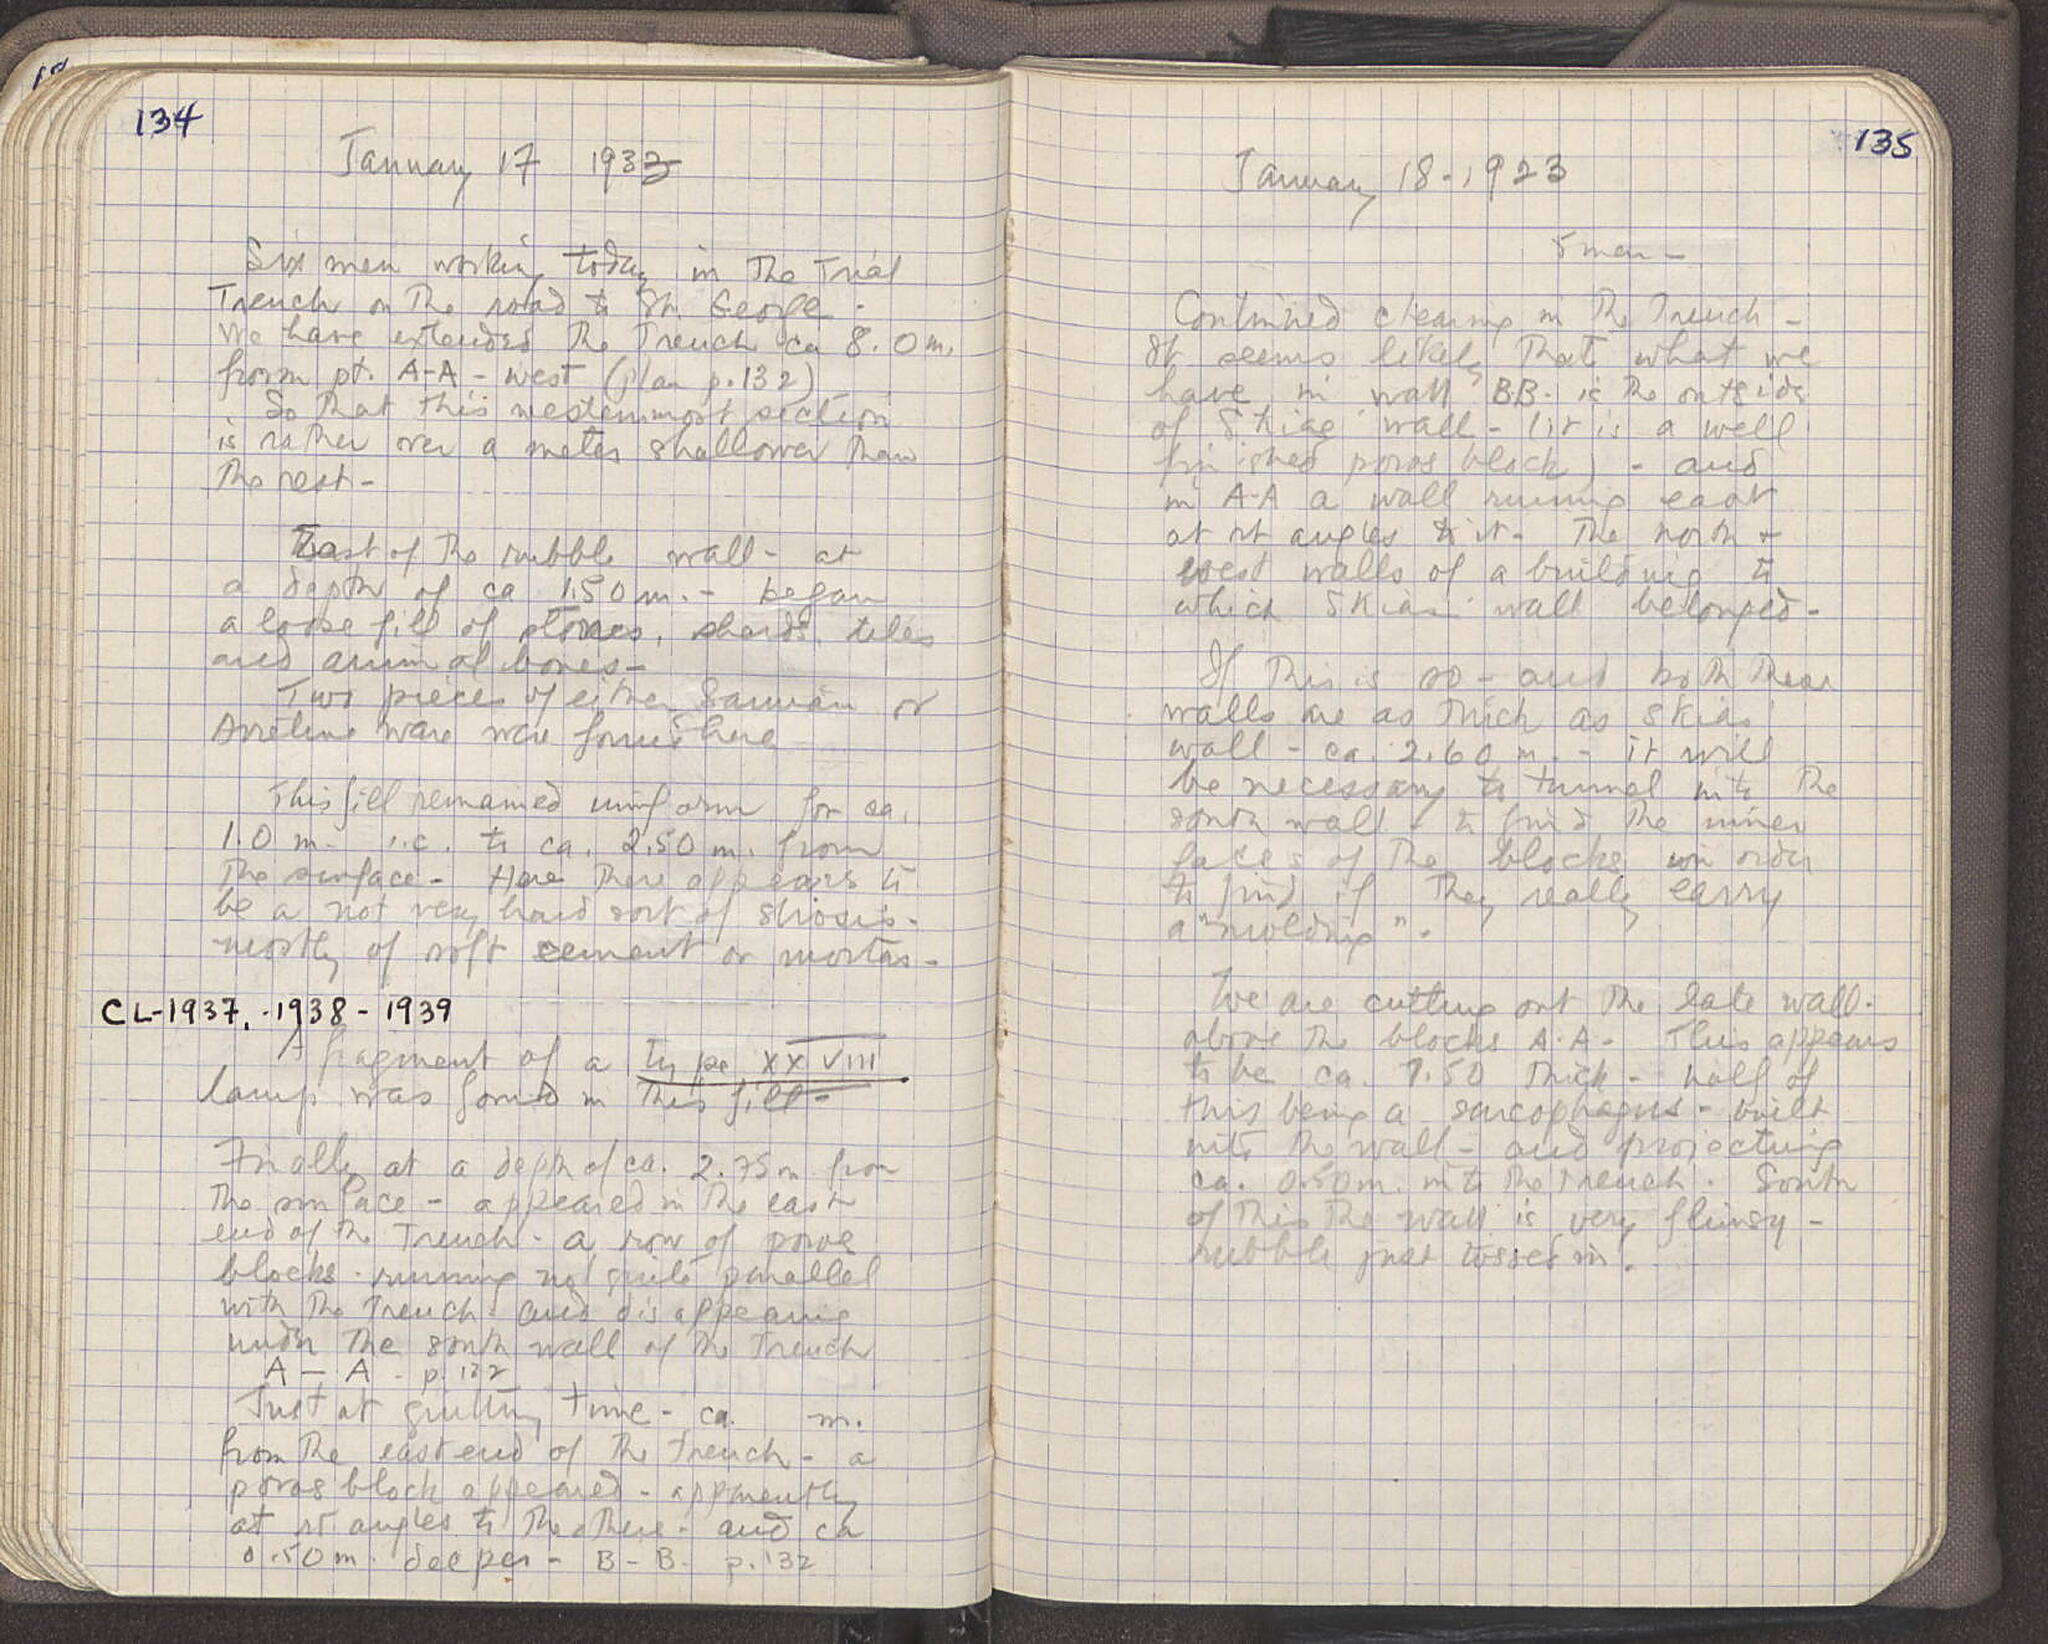 134
January 17 1933
Six men working today in the Trial
Trench on the road to St. George -
We have extended the Trench ca 8.0 m.
from pt. A-A - west (plan p. 132)
So that this westernmost section
is rather over a meter shallower than
the rest -
East of the rubble wall - at
a depth of ca 1.50 m. - began
a loose fill of stones, sherds, tiles
and animal bones -
Two pieces of either Samian or
Arretine ware were found here
This fill remained uniform for ca.
1.0 m. i.e. to ca. 2.50 m. from
the surface - Here there appears to
be a not very hard sort of strosis -
mostly of soft cement or mortar -
CL-1937. - 1938 - 1939
A fragment of a Type XXVIII
lamp was found in this fill -
Finally at a depth of ca. 2.75 m from
the surface - appeared in the east
end of the Trench - a row of poros
blocks - running not quite parallel
with the trench and disappearing
under the south wall of the trench
A - A - p. 132
Just at quitting time - ca. m.
from the east end of the trench - a
poros block appeared - apparently
at rt angles to the others - and ca
0.50 m. deeper - B - B - p. 132
135
January 18 - 1923
5 men -
Continued clearing in the Trench -
It seems likely that what we
have in wall BB. is the outside
of Skias' wall - (it is a well
finished poros block) - and
in A-A a wall running east
at rt angles to it - The north +
west walls of a building to
which Skias' wall belonged -
If this is so - and both these
walls are as thick as Skias'
wall - ca. 2.60 m. - it will
be necessary to tunnel into the
south wall - to find the inner
faces of the blocks in order
to find if they really carry
a "molding".
We are cutting out the late wall
above the blocks A.A - This appears
to be ca. 1.50 thick - half of
this being a sarcophagus - built
into the wall - and projecting
ca. 0.50 m. into the trench. South
of this the wall is very flimsy -
rubble just tossed in.